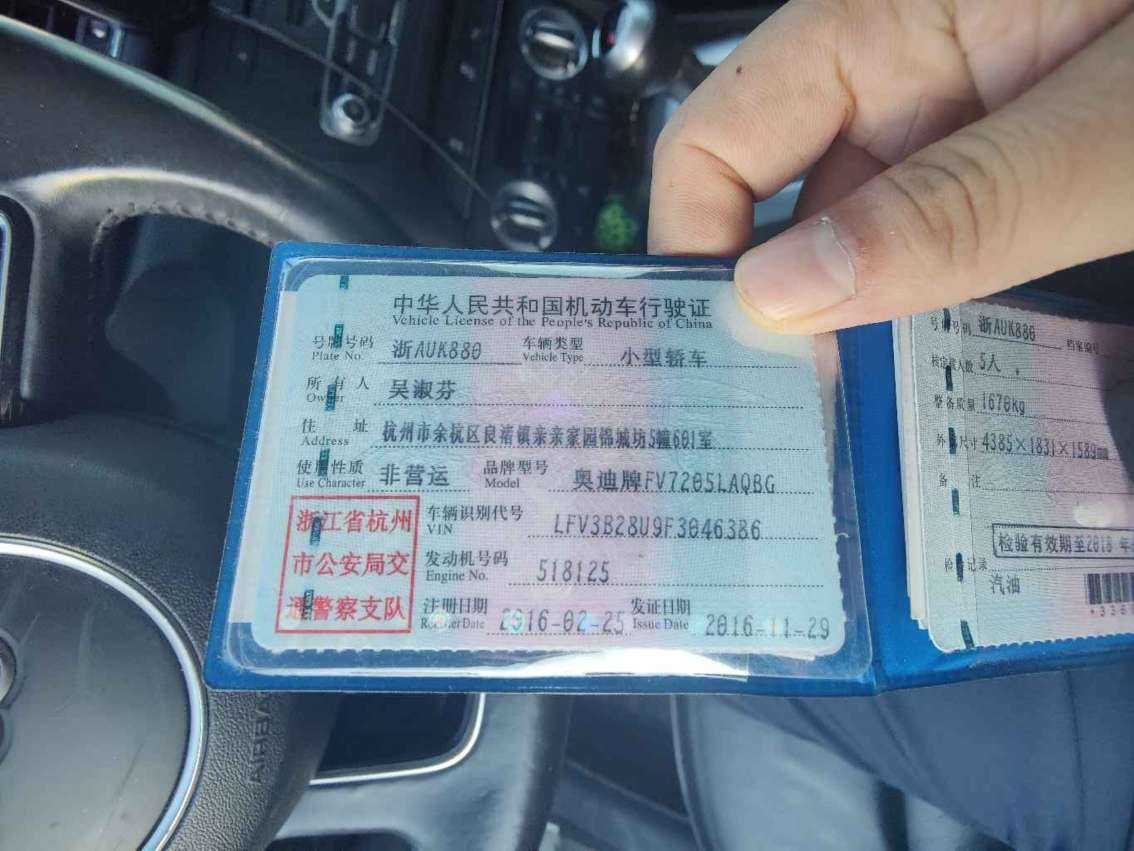 中华人民共和国机动车行驶证
Vehicle License of the People's Republic of China
号牌号码 浙AUK880 车辆类型 小型轿车
Plate No. Vehicle Type
所有人 吴淑芬
Owner
住址 杭州市余杭区良渚镇亲亲家园锦城坊5幢601室
Address
使用性质 非营运 品牌型号 奥迪牌FV7205LAQBG
Use Character Model
浙江省杭州
市公安局交
通警察支队
车辆识别代号 LFV3B28U9F3046386
VIN
发动机号码 518125
Engine No.
注册日期 2016-02-25 发证日期 2016-11-29
Register Date Issue Date
号牌号码 浙AUK880 档案编号
核定载人数 5人
整备质量 1670kg
外廓尺寸 4385×1831×1589mm
备注
检验有效期至2018年
检验记录
汽油
AIRBA